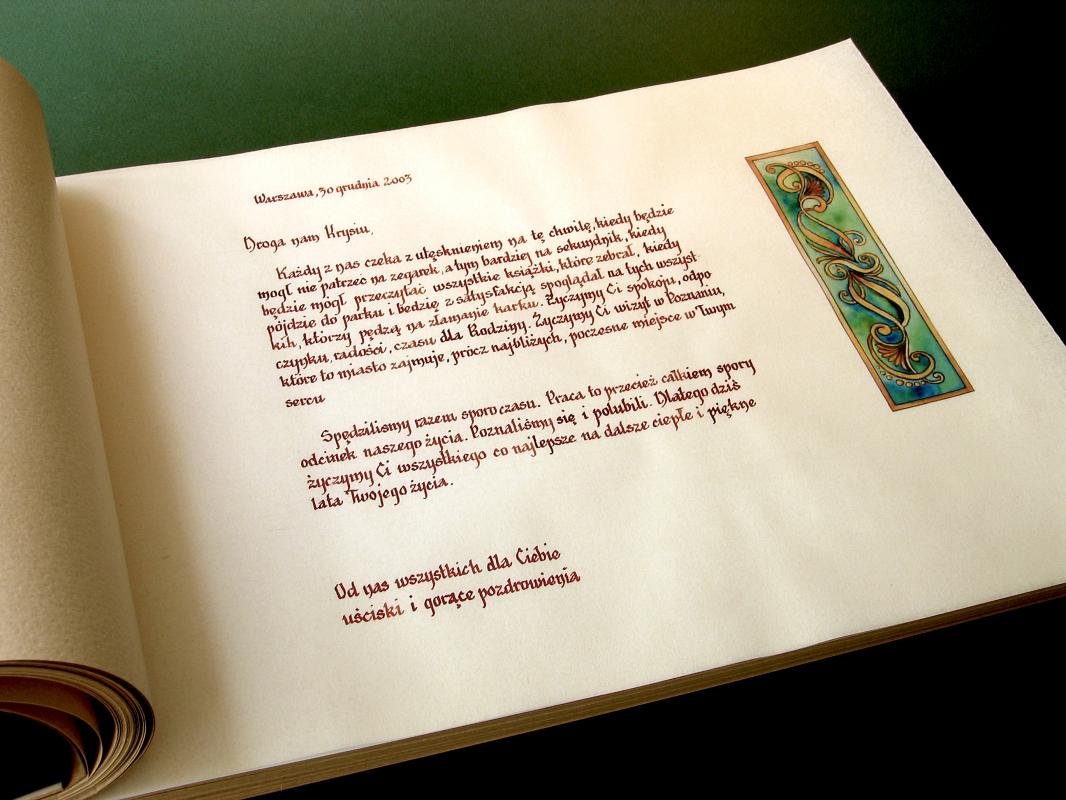 Warszawa, 30 grudnia 2003
Droga nam Krysiu,
Każdy z nas czeka z utęsknieniem na tę chwilę, kiedy będzie
mogł nie patrzeć na zegarek, a tym bardziej na sekundnik, kiedy
będzie mógł przeczytać wszystkie książki, które zebrał, kiedy
pójdzie do parku i będzie z satysfakcją spoglądał na tych wszyst-
kich, którzy pędzą na złamanie karku. Życzymy Ci spokoju, odpo-
czynku, radości, czasu dla Rodziny. Życzymy Ci wizyt w Poznaniu,
które to miasto zajmuje, prócz najbliższych, poczesne miejsce w Twym
sercu
Spędzilismy razem sporo czasu. Praca to przecież całkiem spory
odcinek naszego życia. Poznaliśmy się i polubili. Dlatego dziś
życzymy Ci wszystkiego co najlepsze na dalsze ciepłe i piękne
lata Twojego życia.
Od nas wszystkich dla Ciebie
uściski i gorące pozdrowienia